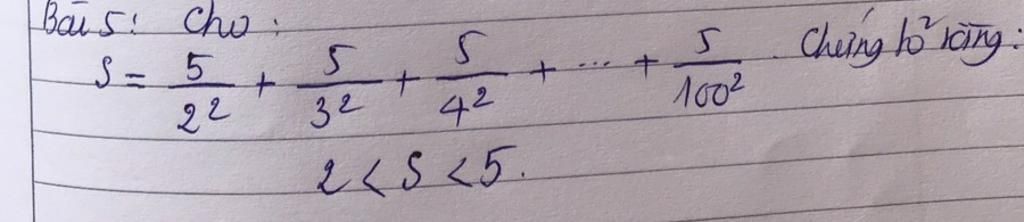 Bài 5: Cho:
S = 5/2² + 5/3² + 5/4² + ... + 5/100². Chứng tỏ rằng:
2 < S < 5.